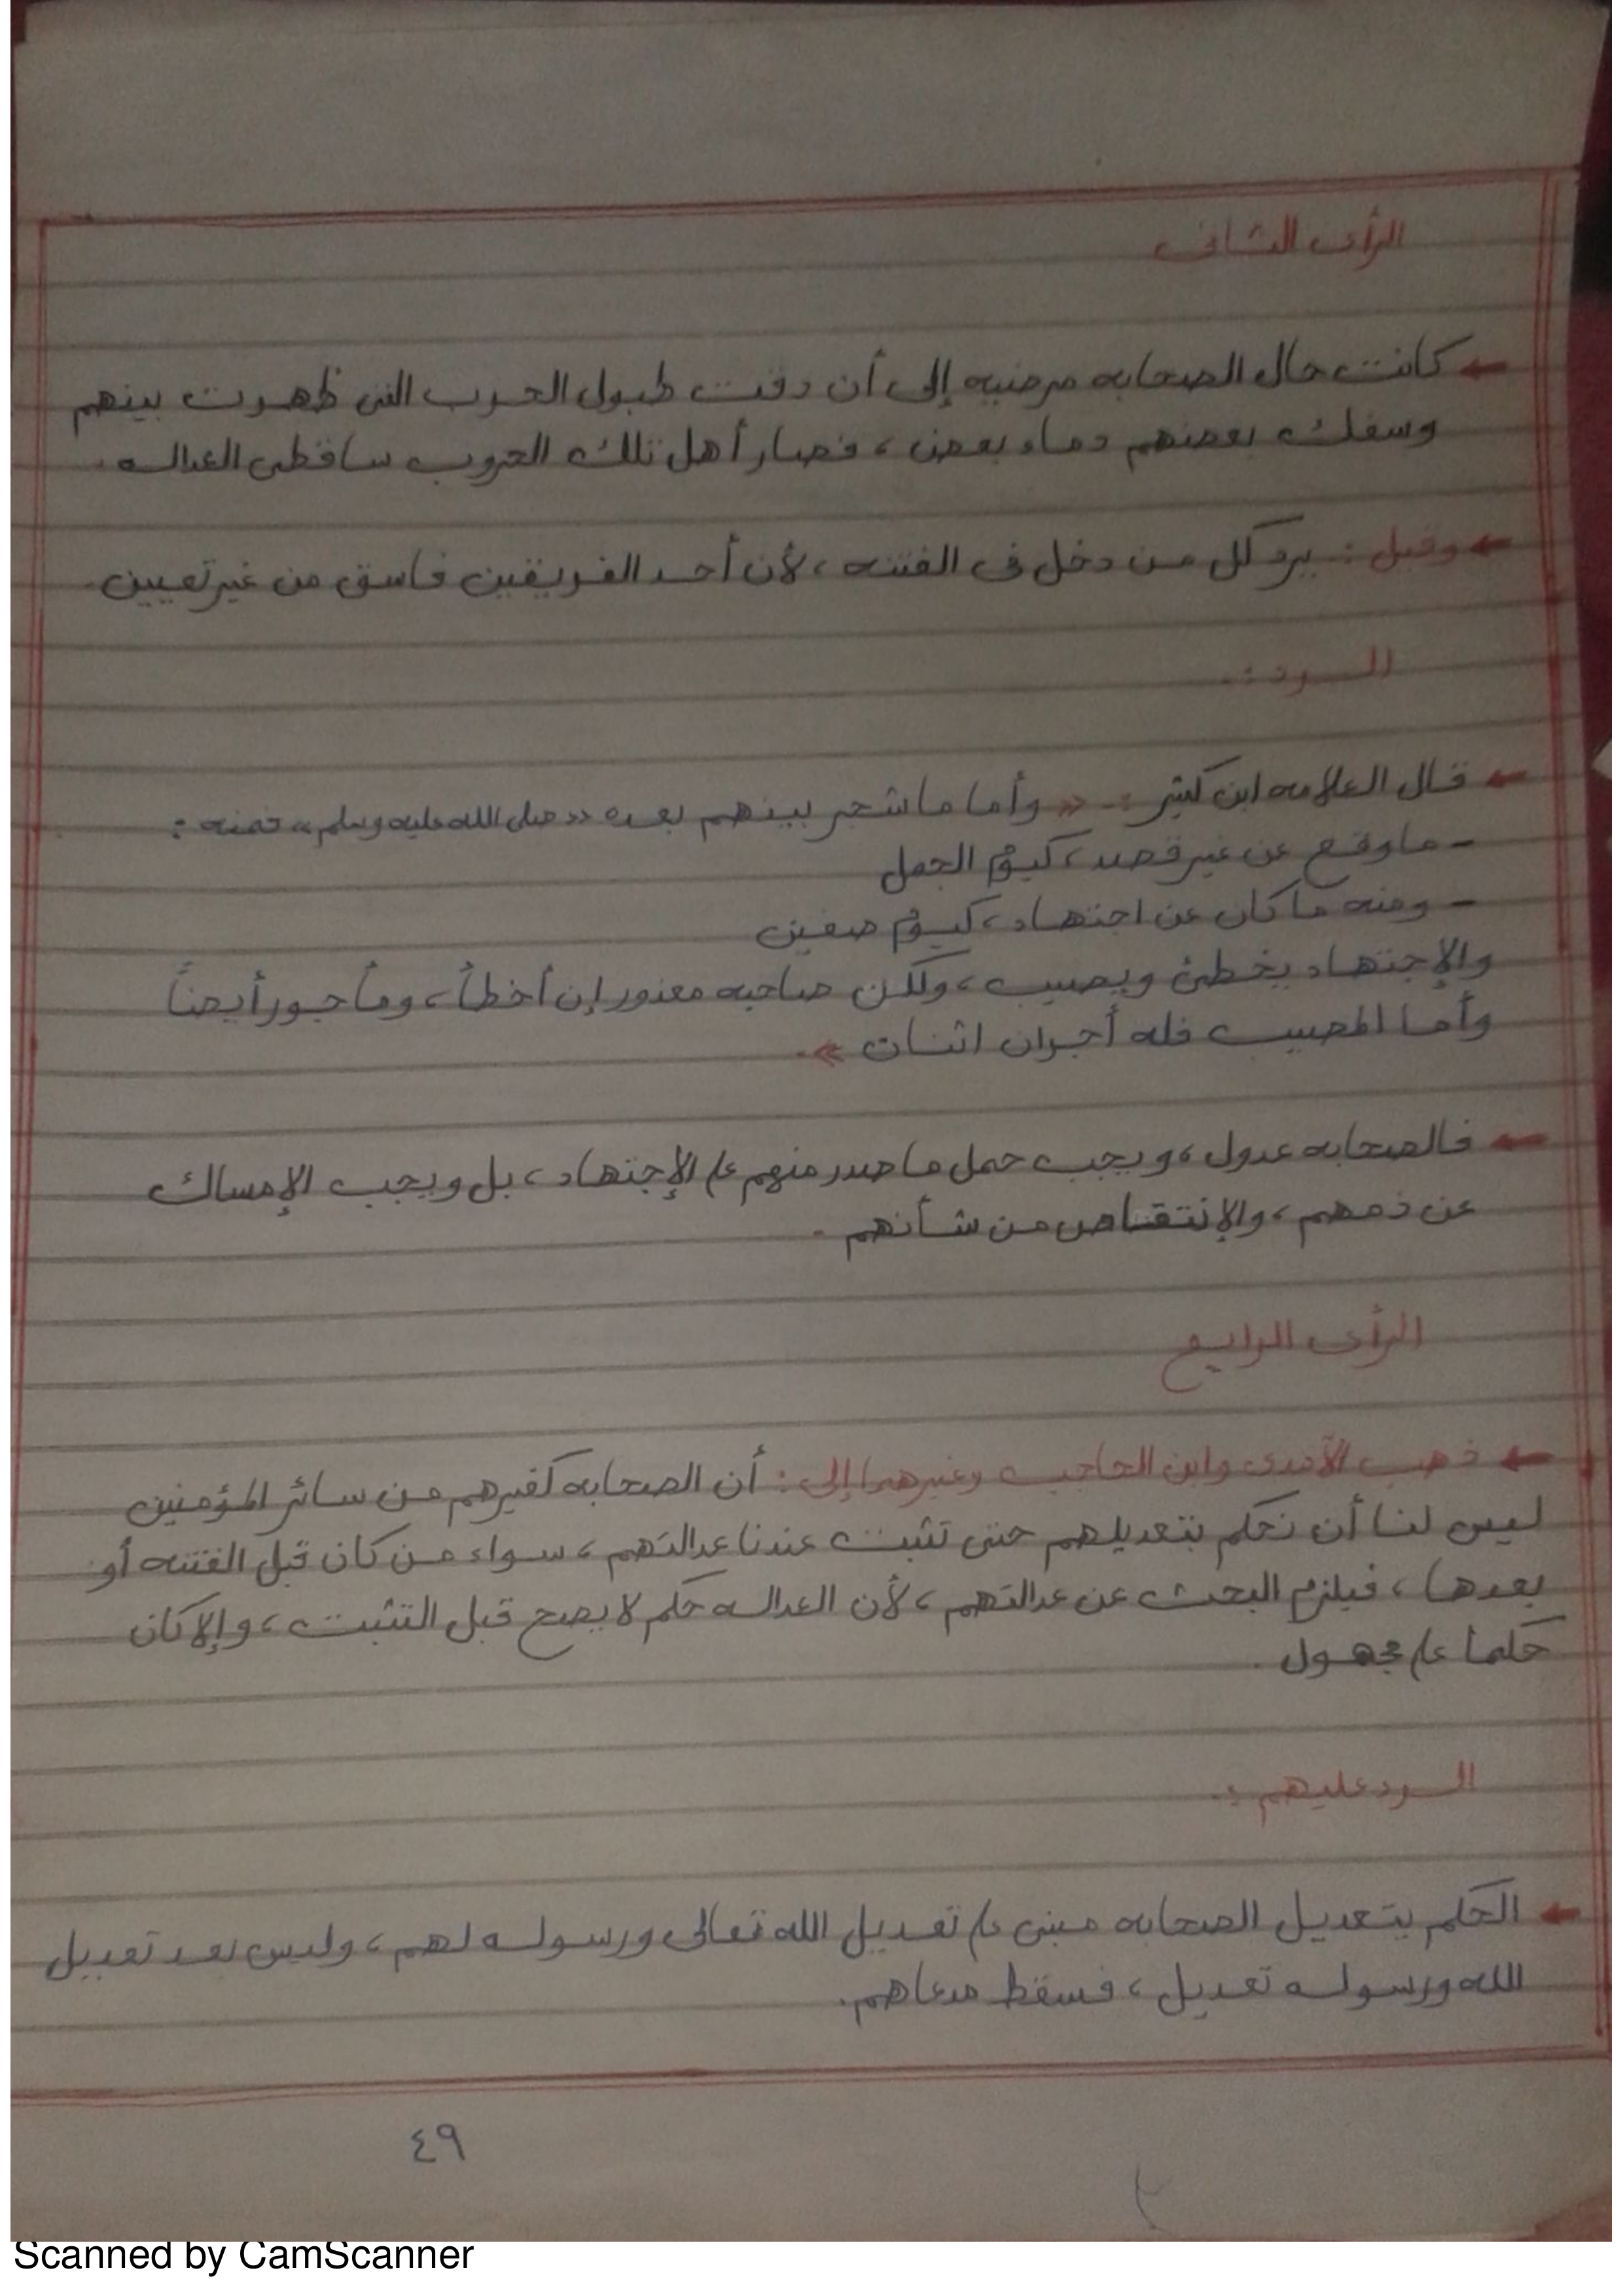 الرأى الثانى
← كانت حال الصحابه مرضيه إلى أن دقت طبول الحرب التى ظهرت بينهم
وسفك بعضهم دماء بعض، فصار أهل تلك الحروب ساقطى العداله.
← وقيل: يرد كل من دخل فى الفتنه، لأن أحد الفريقين فاسق من غير تعيين.
الرد:.
← قال العلامه ابن كثير:. « وأما ما شجر بينهم بعده «صلى الله عليه وسلم» فمنه:
- ما وقع عن غير قصد، كيوم الجمل
- ومنه ما كان عن اجتهاد، كيوم صفين
والإجتهاد يخطئ ويصيب، ولكن صاحبه معذور إن أخطأ، ومأجور أيضاً
وأما المصيب فله أجران اثنان ».
← فالصحابه عدول، ويجب حمل ما صدر منهم على الإجتهاد، بل ويجب الإمساك
عن ذمهم، والإنتقاص من شأنهم.
الرأى الرابع
← ذهب الآمدى وابن الحاجب وغيرهما إلى: أن الصحابه كغيرهم من سائر المؤمنين
ليس لنا أن نحكم بتعديلهم حتى تثبت عندنا عدالتهم، سواء من كان قبل الفتنه أو
بعدها، فيلزم البحث عن عدالتهم، لأن العداله حكم لا يصح قبل التثبت، وإلا كان
حكما على مجهول.
الرد عليهم:.
← الحكم بتعديل الصحابه مبنى على تعديل الله تعالى ورسوله لهم، وليس بعد تعديل
الله ورسوله تعديل، فسقط مدعاهم.
٤٩
Scanned by CamScanner